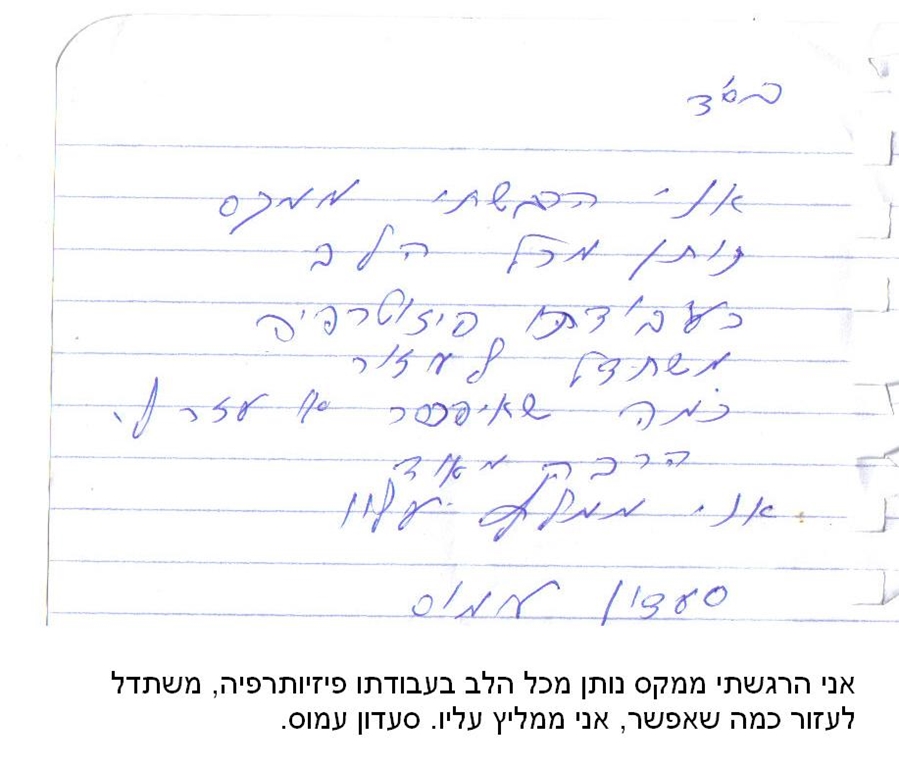 בס"ד
אני הרגשתי ממקס
נותן מכל הלב
בעבודתו פיזוטרפיה
משתדל לעזור
כמה שאיפסר עזר לי
הרבה מאוד
אני ממליץ עליו
סעדון עמוס
אני הרגשתי ממקס נותן מכל הלב בעבודתו פיזיותרפיה, משתדל
לעזור כמה שאפשר, אני ממליץ עליו. סעדון עמוס.